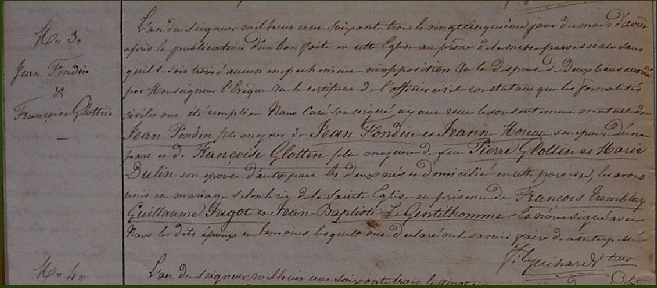 Mr 3e
Jean Fondin
&
Françoise Glottin
L'an du Seigneur mil huit cent soixante trois le vingt cinquième jour du mois d'avril
après la publication d'un ban faite en cette Église au prône de la messe paroissiale sans
qu'il se soit trouvé aucun empêchement ni opposition Vu la Dispense de Deux bans accordée
par Monseigneur l'Evêque Vu le certificat de l'officier civil constatant que les formalités
civiles ont été remplies Nous Curé soussigné ayant reçu le consentement mutuel de
Jean Fondin fils majeur de Jean Fondin et Jeanne d'une
part et de Françoise Glottin fille majeure de feu Pierre Glottin et Marie
Dutin son épouse d'autre part les deux de domicile en cette paroisse, les avons
unis en mariage selon le rit de la Sainte Église en présence de François Tremblay
Guillaume et Jean Baptiste Le Gentilhomme soussigné avec
Nous les dits époux et témoins lesquels ont déclaré ne savoir
Guichard
Mr 4e
L'an du seigneur mil huit cent soixante trois le